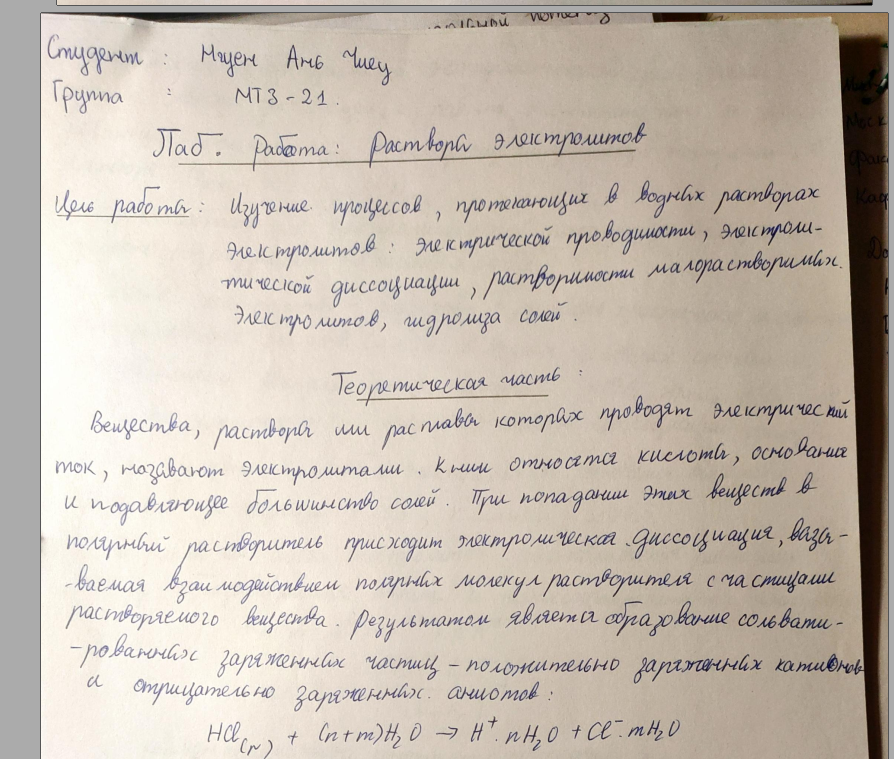 Студент : Нгуен Ань Чиеу
Группа : МТ3-21.
Лаб. Работа: Раствора электролитов
Цель работа: Изучение процессов, протекающих в водных растворах
электролитов: электрической проводимости, электроли-
тической диссоциации, растворимости малорастворимых.
электролитов, гидролиза солей.
Теоретическая часть:
Вещества, раствора или расплава которах проводят электрический
ток, називают электролитали. К ним относятся кислота, основания
и подавляющее большинство солей. При попадании этих веществ в
полярный растворитель присходит электролическая диссоциация,ваза-
-ваемая взаимодействием полярных молекул растворителя с частицами
растворяемого вещества. Результатом является образование сольвати-
-рованных заряженных частиц - положительно заряженных катионов
и отрицательно заряженных. аниотов:
HCl(г) + (n+m)H₂O → H⁺·nH₂O + Cl⁻·mH₂O